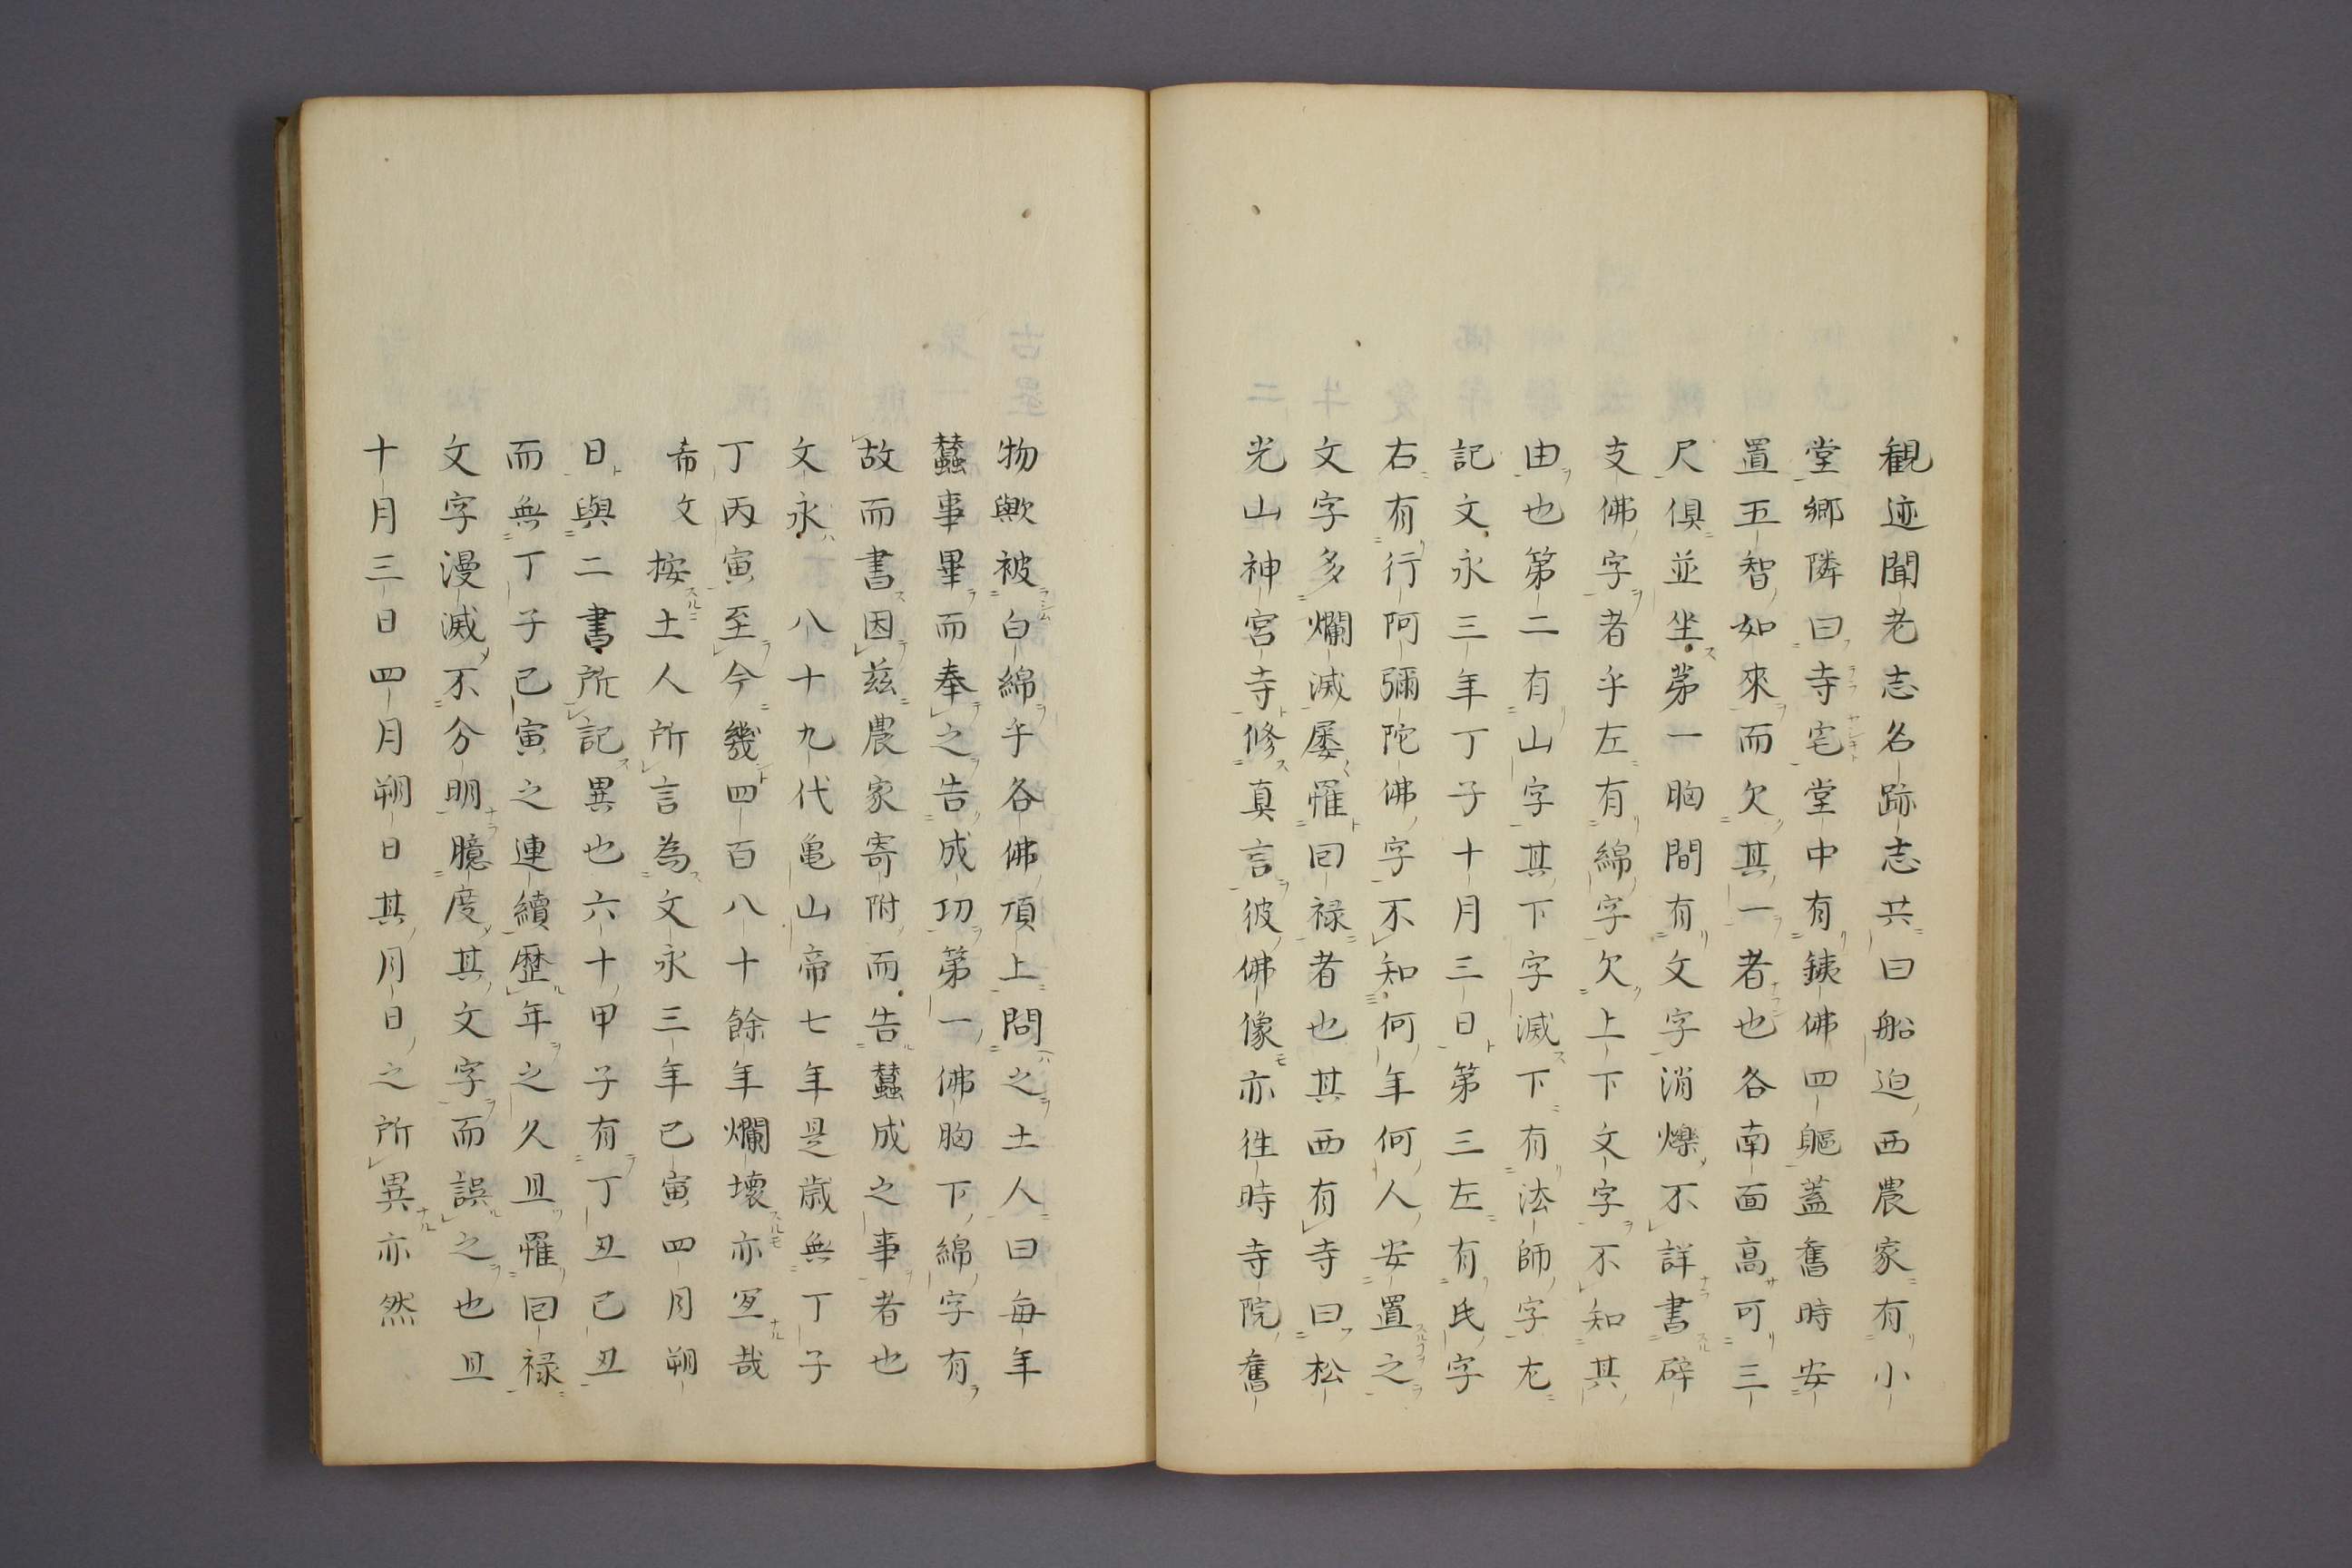 観迹聞老志名跡志共曰船迫西農家有小
堂郷隣曰寺宅堂中有銕佛四軀蓋舊時安
置五智如來而欠其一者也各南面高可三
尺倶並坐第一胸間有文字消爍不詳書辟
支佛字者乎左有綿字欠上下文字不知其
由也第二有山字其下字滅下有法師字尢
記文永三年丁子十月三日第三左有氏字
右有行阿彌陀佛字不知何年何人安置之
文字多爛滅屡罹囘禄者也其西有寺曰松
光山神宮寺修真言彼佛像亦徃時寺院舊
物歟被白綿乎各佛頂上問之土人曰毎年
蠶事畢而奉之告成功第一佛胸下綿字有
故而書因茲農家寄附而告蠶成之事者也
文永 八十九代亀山帝七年是歳無丁子
丁丙寅至今幾四百八十餘年爛壊亦冝哉
希文 按土人所言為文永三年己寅四月朔
日與二書所記異也六十甲子有丁丑己丑
而無丁子己寅之連續歴年之久且罹囘禄
文字漫滅不分明臆度其文字而誤之也且
十月三日四月朔日其月日之所異亦然